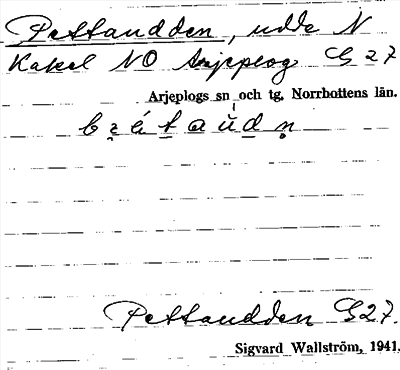 Pettaudden, udde N
Kakel NO Arjeplog G 27
Arjeplogs sn och tg, Norrbottens län.
Pettaudden G 27.
Sigvard Wallström, 1941.